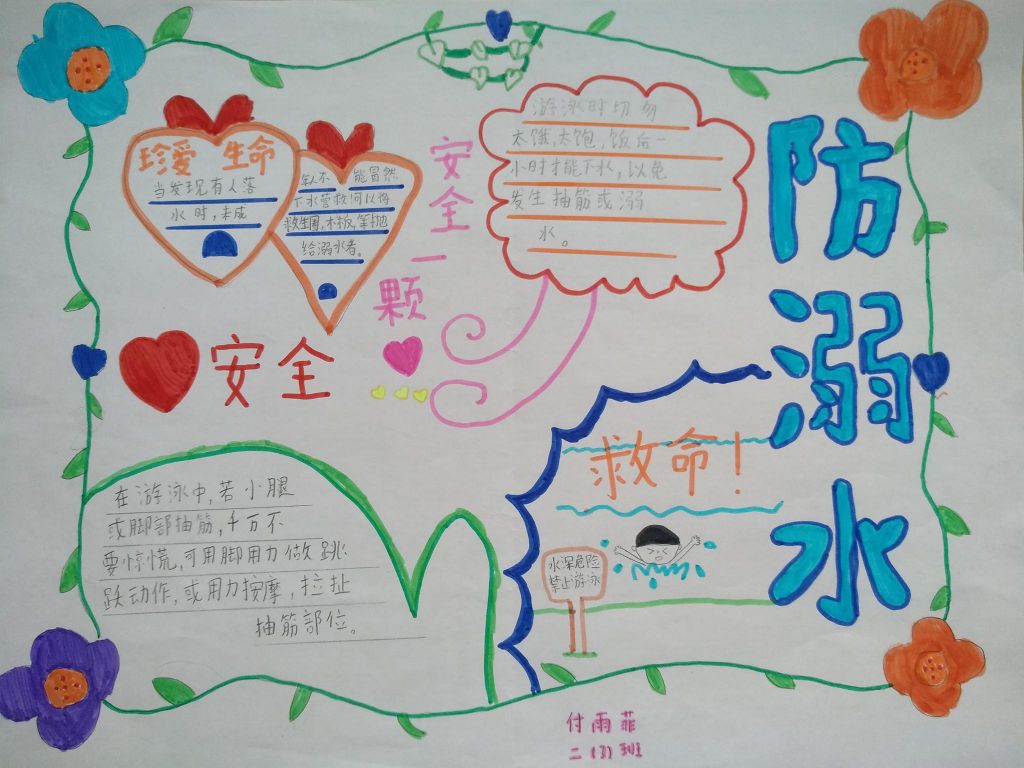 防溺水
珍爱 生命
当发现有人落
水时，未成
年人不 能冒然
下水营救可以将
救生圈，木板，等抛
给溺水者。
安全一颗
安全
游泳时切勿
太饿，太饱，饭后一
小时才能下水，以免
发生抽筋或溺
水。
在游泳中，若小腿
或脚部抽筋，千万不
要惊慌，可用脚用力做跳
跃动作，或用力按摩，拉扯
抽筋部位。
救命！
水深危险
禁止游泳
付雨菲
二（1）班